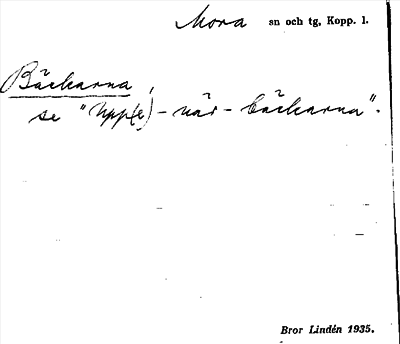 Mora sn och tg, Kopp. l.
Bäckarna,
se "Upp(e)-när-bäckarna".
Bror Lindén 1935.